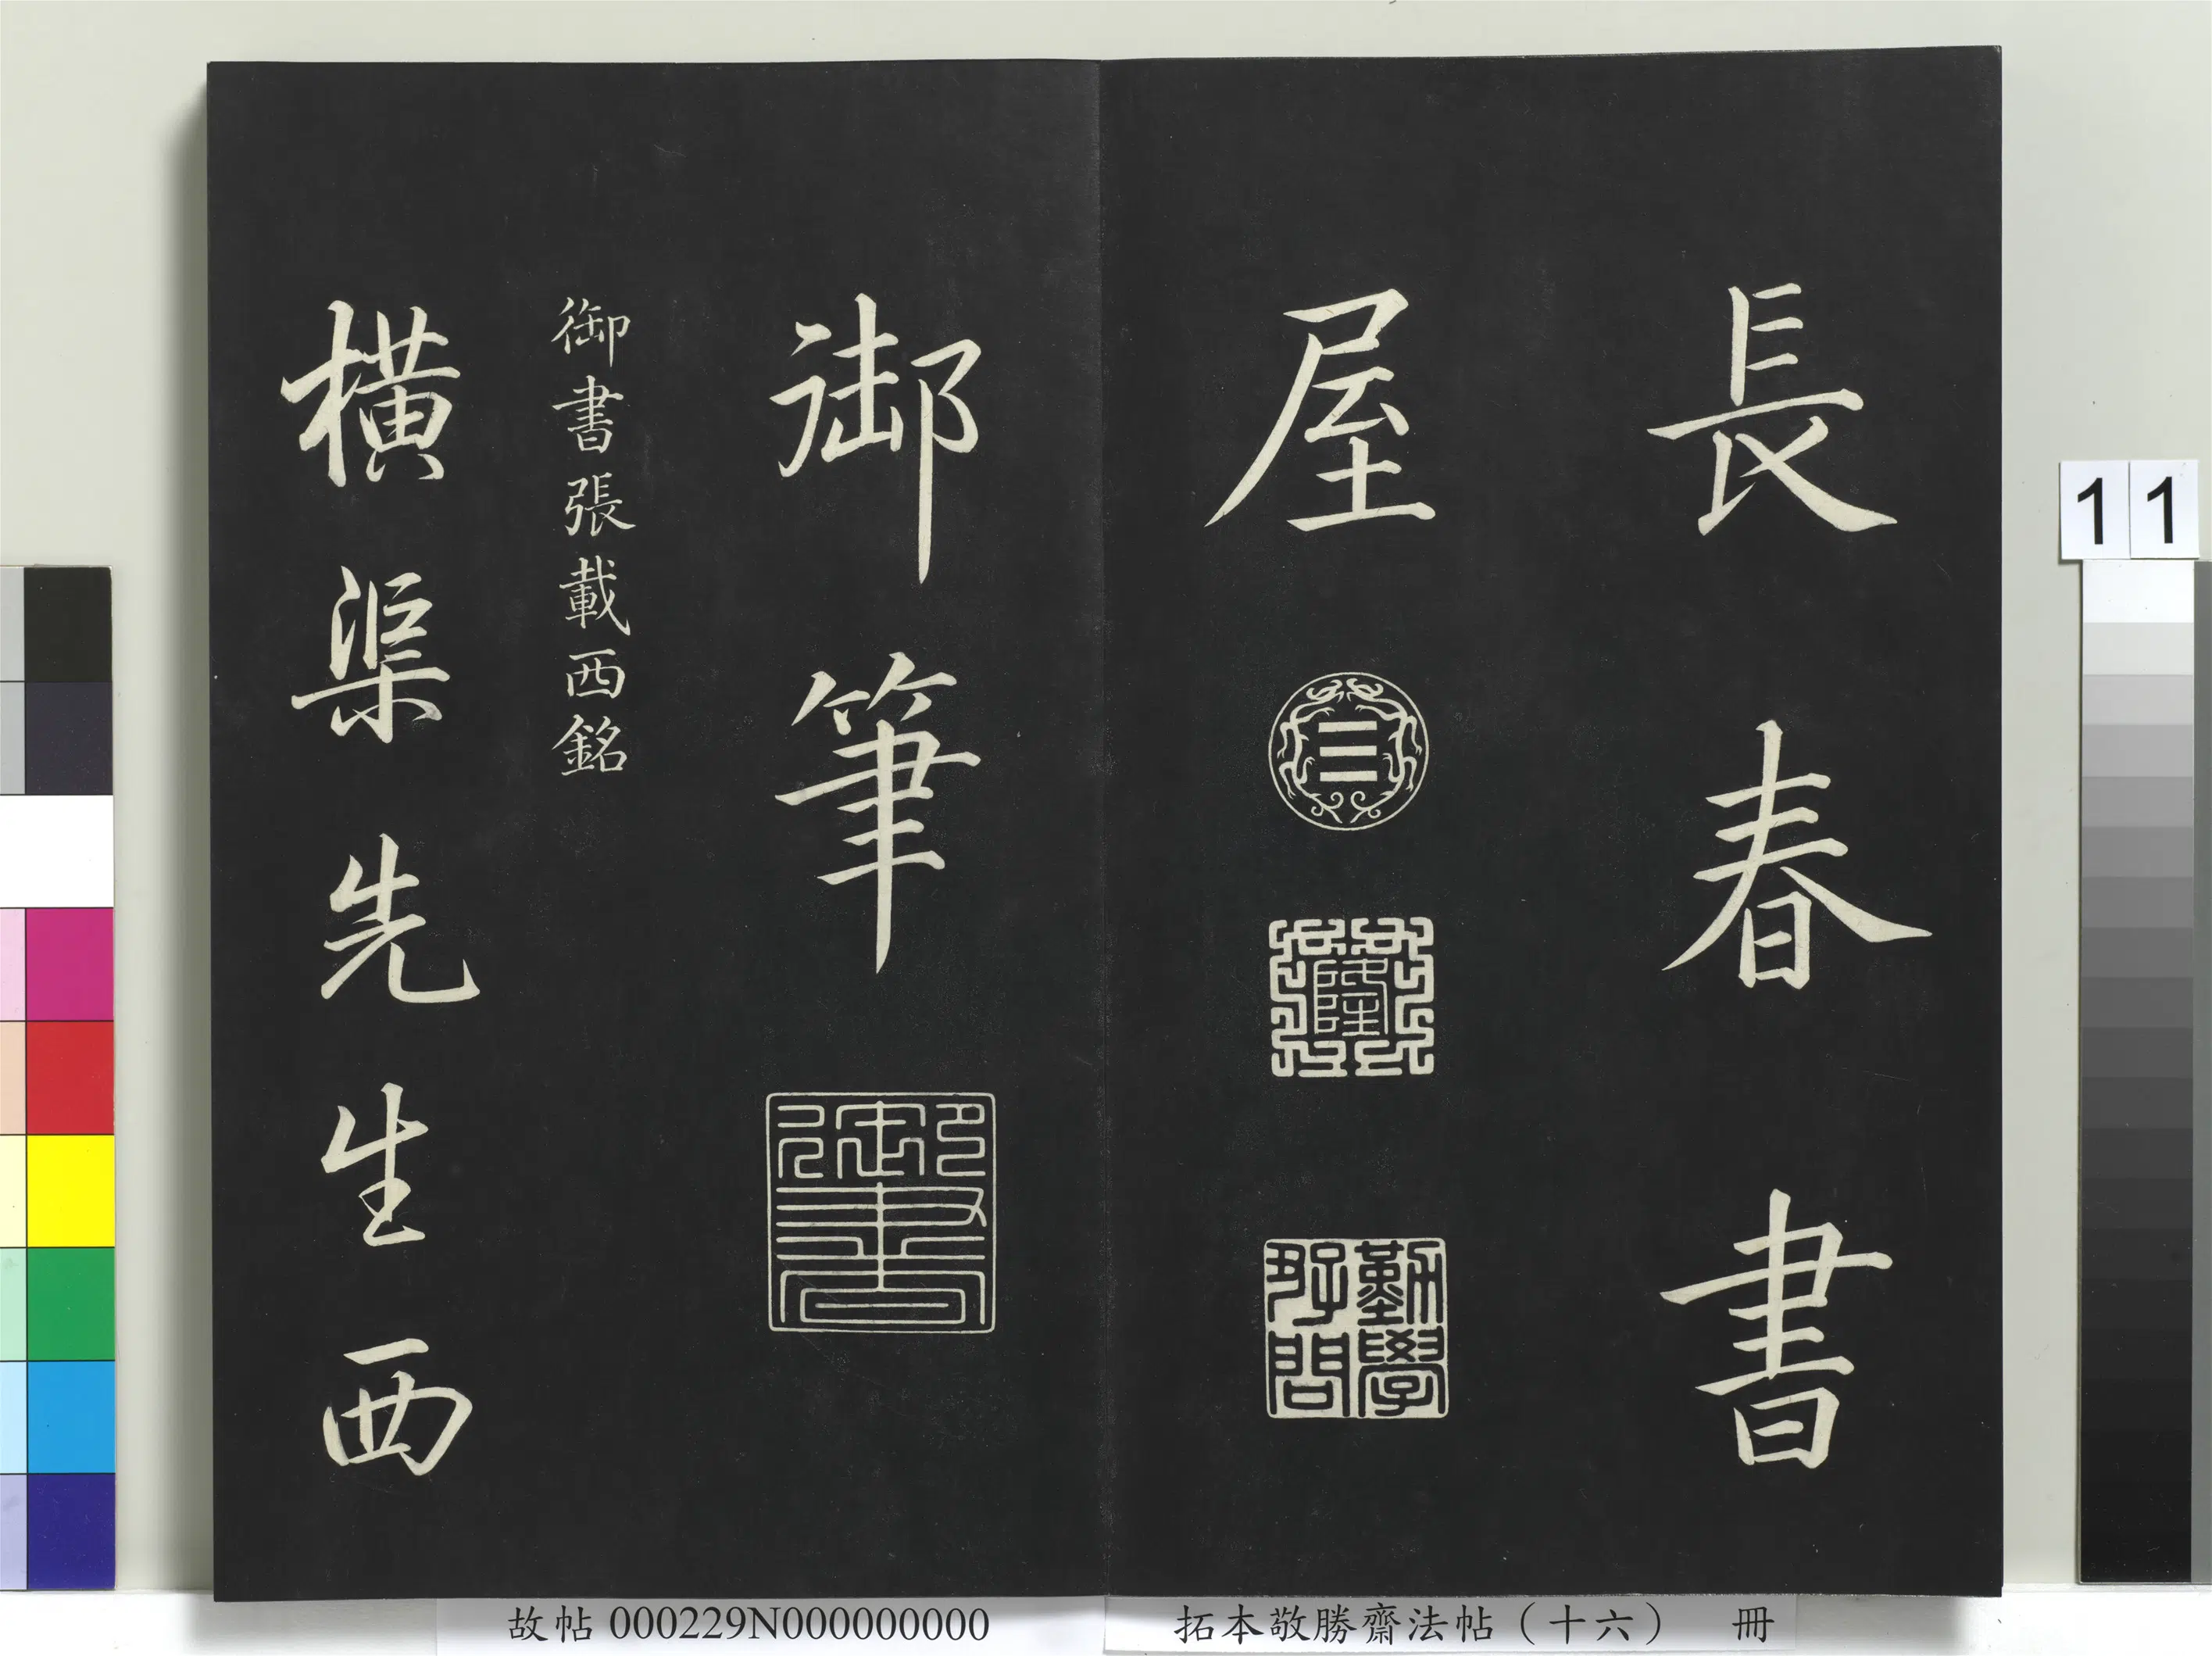 長春書
屋
☰
乾隆
勤學
好問
御筆
御書
御書張載西銘
橫渠先生西
11
故帖 000229N000000000
拓本敬勝齋法帖（十六） 冊